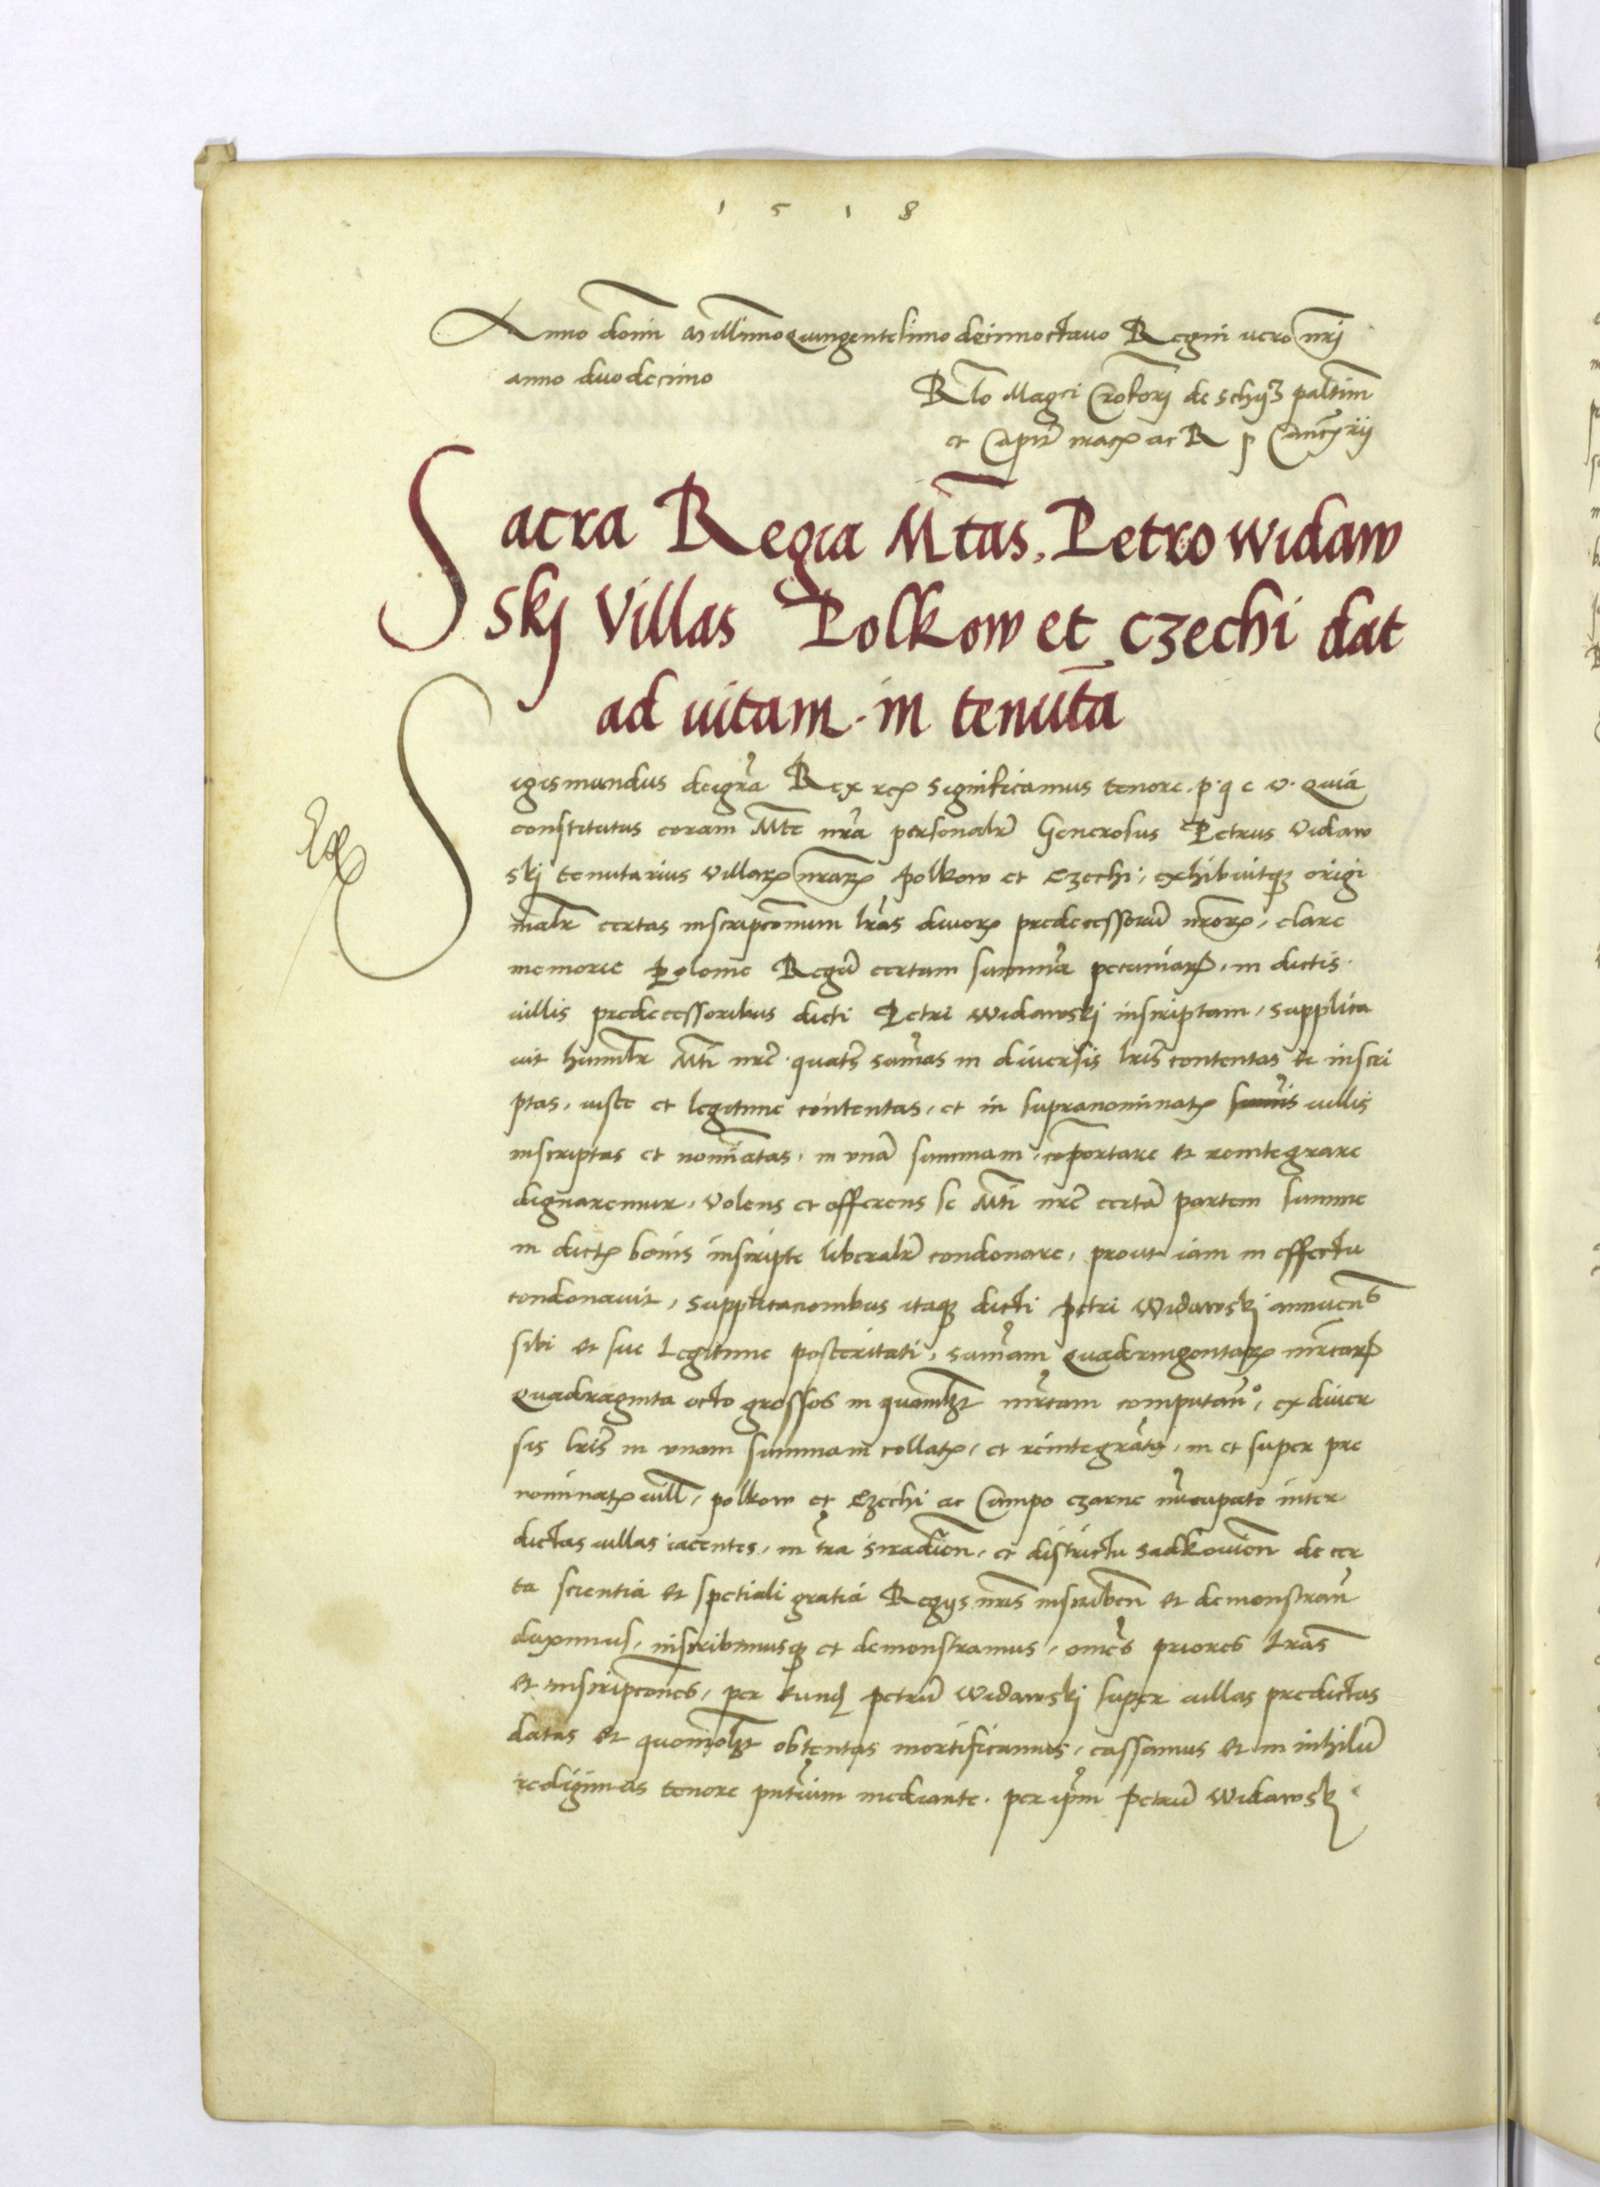 1518
Anno domi millimo Quingentesimo decimoctavo Regni uero nri
anno duodecimo
Rlo Magci Cristofori de Schydlo paltim
et Capit ac R p Cancrii
Sacra Regia Mtas, Petro widaw
skj Villas Polkow et Czechi dat
ad uitam in tenuta
Sigismundus dei gra Rex rcz Significamus tenore p q e v. Quia
constitutus coram Mte nra personalr Generosus Petrus Vidaw
skj tenutarius villarz nrarz Polkow et Czechi, exhibuitqz origi
nalr certas inscripcionum lras diuorz predecessorum nrorz, clare
memorie Polonie Regum certam summa pecuniarz, in dictis
uillis predecessoribus dicti Petri Widawskj inscriptam, supplica
uit humilr Mti nre quatens sumas in diuersis lris contentas et inscri
ptas, iuste et legitime contentas, et in supranominatz uillis
inscriptas et nominatas, in una summam, comportare et reintegrare
dignaremur, Volens et offerens se Mti nre certa partem summe
in dictz bonis inscripte liberalr condonare, prout iam in effectu
condonauit, Supplicacionibus itaqz dicti petri Widawskj annuens
sibi et sue Legitime posteritati, summam Quadringentarz mrcarz
Quadraginta octo grossos in quamlibet mrcam computan, ex diuer
sis lris in unam summam collatz, et reintegratz, in et super pre
nominatz uill, polkow et Czechi ac Campo czarne nuncupato inter
dictas uillas iacentes, in tra siradien, et districtu Sadkowien de cer
ta scientia et spetiali gratia Regiis nris inscriben et demonstran
duximus, inscribimusqz et demonstramus, omes priores Lras
et inscripcones, per eund petrum Widawskj super uillas predictas
datas et quomolibet obtentas mortificamus, cassamus et in nihilum
redigimus tenore pntium mediante. per ipm Petrum Widawskj